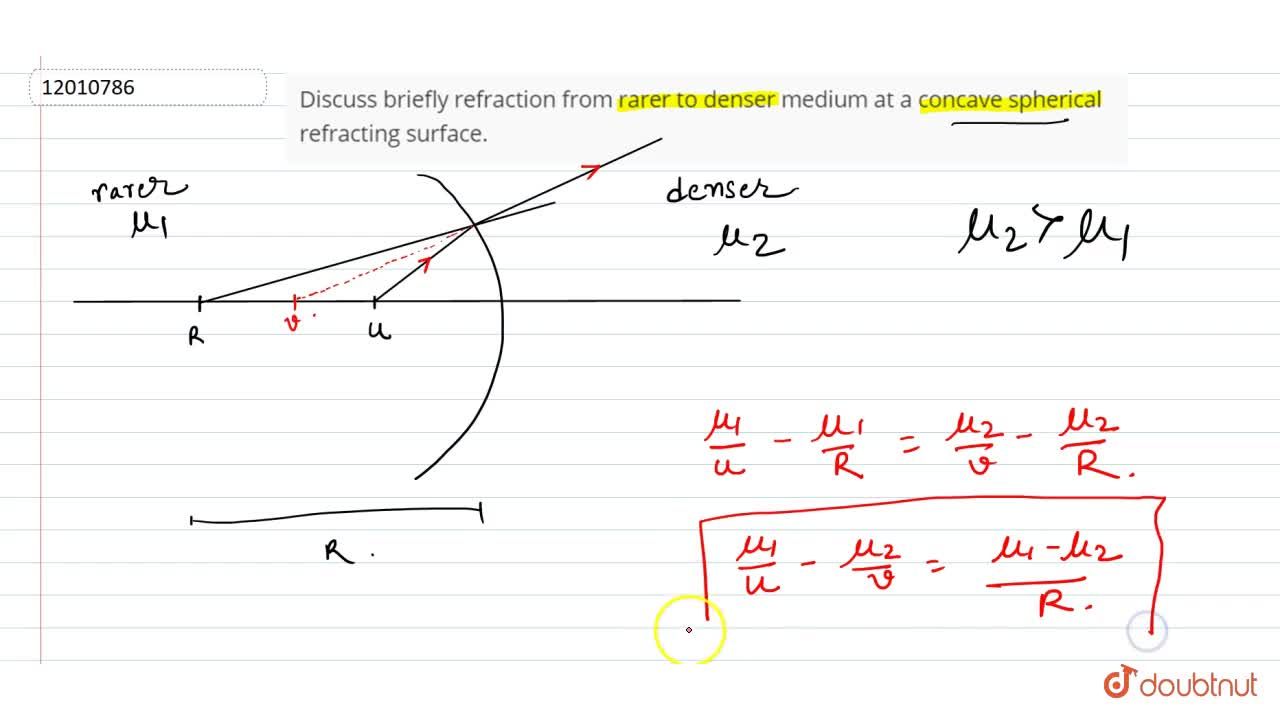 12010786
Discuss briefly refraction from rarer to denser medium at a concave spherical
refracting surface.
rarer
μ1
denser
μ2
μ2 > μ1
R
v
u
μ1/u - μ1/R = μ2/v - μ2/R.
μ1/u - μ2/v = μ1-μ2/R.
R.
doubtnut